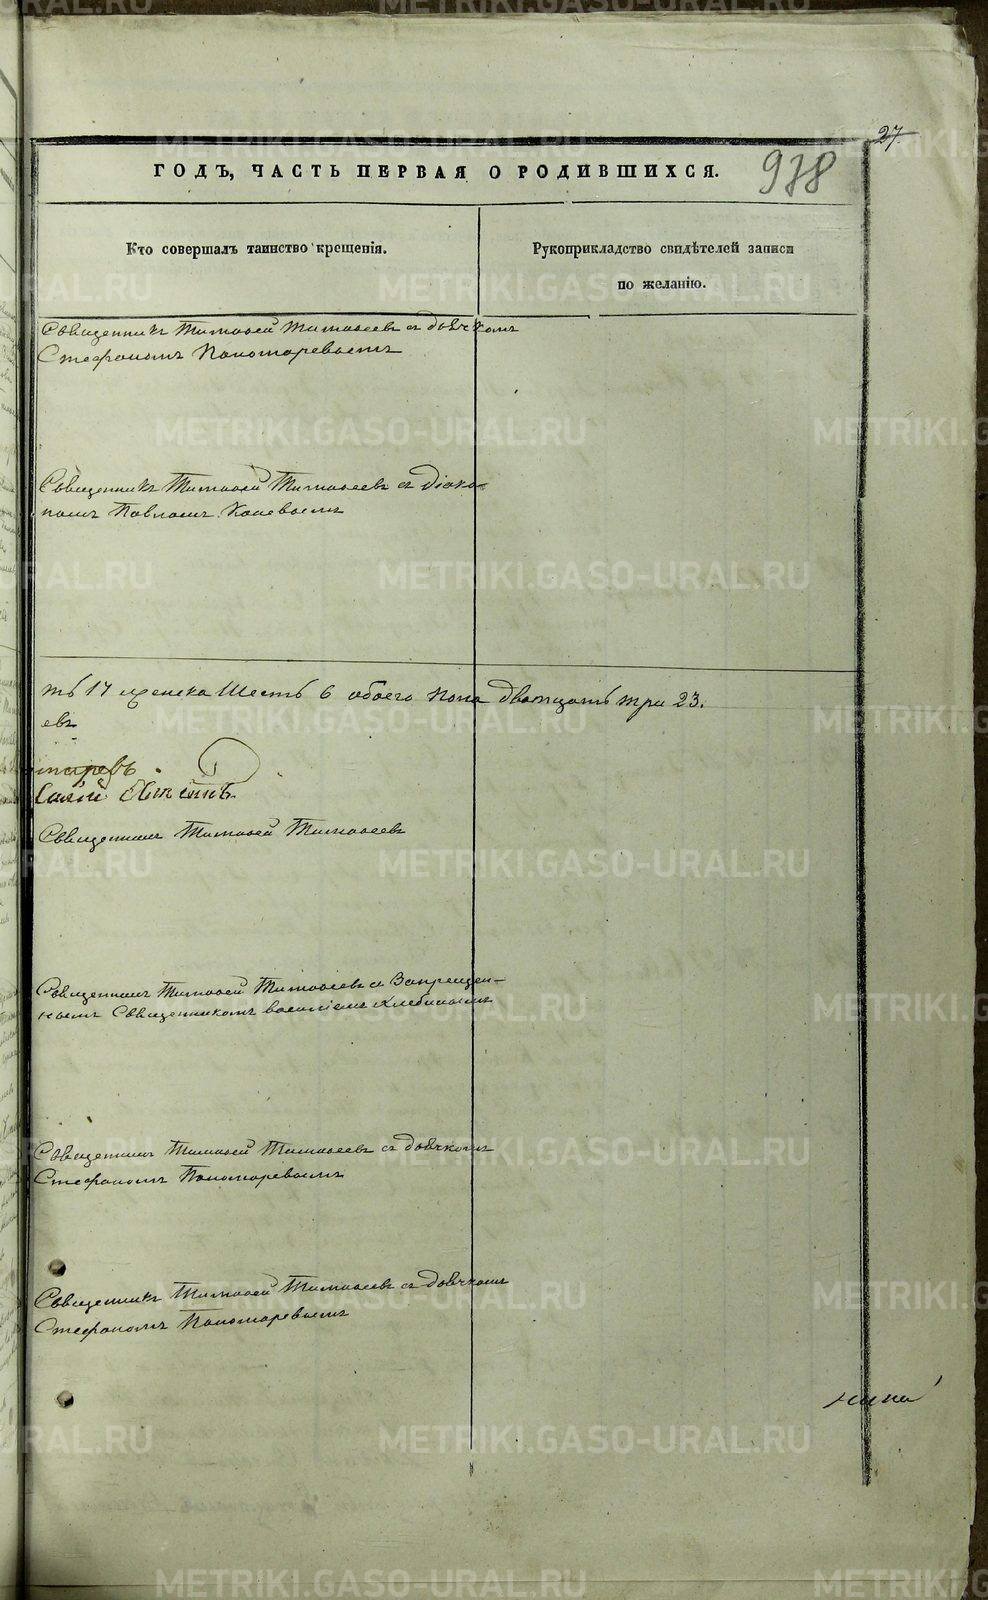 27.
ГОДЪ, ЧАСТЬ ПЕРВАЯ О РОДИВШИХСЯ.
938
Кто совершалъ таинство крещенія.
Рукоприкладство свидѣтелей записи
по желанію.
Священникъ Тимоѳей Тимоѳеевъ съ дьячкомъ
Стефаномъ Пономаревымъ
Священникъ Тимоѳей Тимоѳеевъ съ діако-
номъ Павломъ
тъ 17 женска Шесть 6 обоего пола дватцать три 23.
евъ
Священникъ Тимоѳей Тимоѳеевъ
Священникъ Тимоѳей Тимоѳеевъ съ Запрещен-
нымъ Священникомъ Василіемъ Хлебинымъ
Священникъ Тимоѳей Тимоѳеевъ съ дьячкомъ
Стефаномъ Пономаревымъ
Священникъ Тимоѳей Тимоѳеевъ съ дьячкомъ
Стефаномъ Пономаревымъ
METRIKI.GASO-URAL.RU